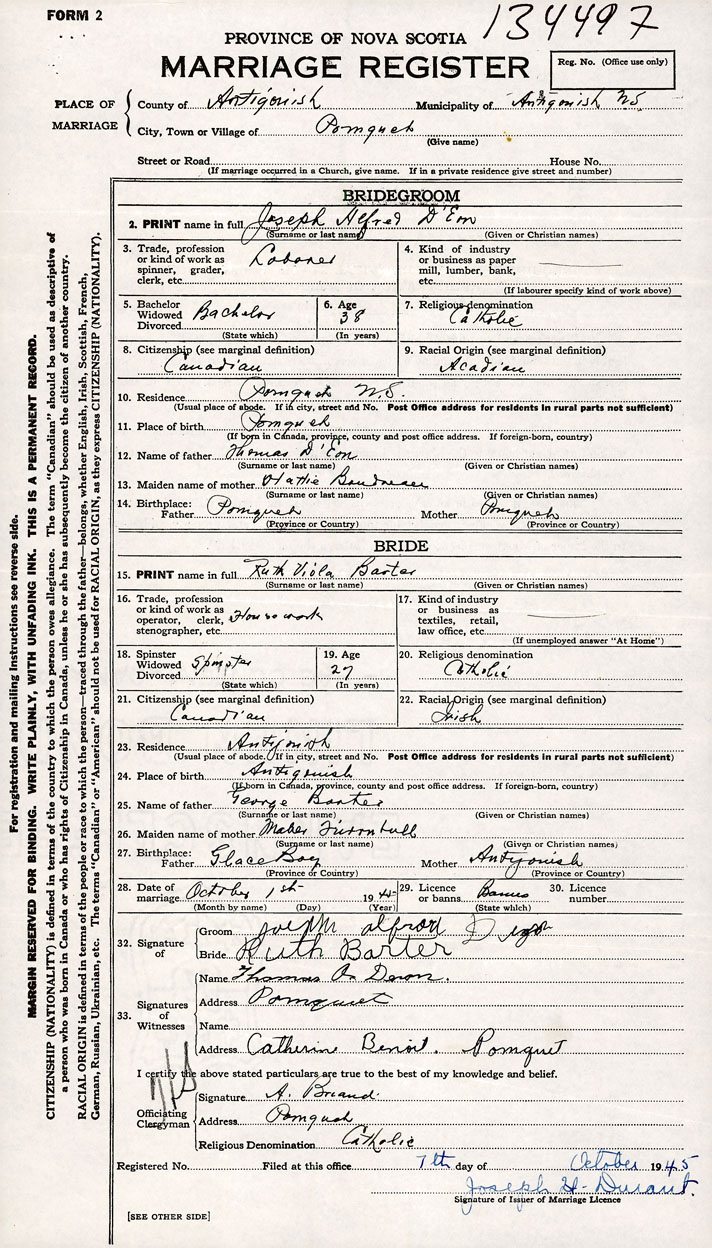 FORM 2
134497
PROVINCE OF NOVA SCOTIA
MARRIAGE REGISTER
Reg. No. (Office use only)
PLACE OF MARRIAGE
County of Antigonish Municipality of Antigonish N.S.
City, Town or Village of Pomquet
(Give name)
Street or Road House No.
(If marriage occurred in a Church, give name. If in a private residence give street and number)
BRIDEGROOM
2. PRINT name in full Joseph Alfred D'Eon
(Surname or last name) (Given or Christian names)
3. Trade, profession or kind of work as spinner, grader, clerk, etc. Laborer
4. Kind of industry or business as paper mill, lumber, bank, etc.
(If labourer specify kind of work above)
5. Bachelor Widowed Divorced Bachelor
(State which)
6. Age 38
(In years)
7. Religious denomination Catholic
8. Citizenship (see marginal definition) Canadian
9. Racial Origin (see marginal definition) Acadian
10. Residence Pomquet N.S.
(Usual place of abode. If in city, street and No. Post Office address for residents in rural parts not sufficient)
11. Place of birth Pomquet
(If born in Canada, province, county and post office address. If foreign-born, country)
12. Name of father Thomas D'Eon
(Surname or last name) (Given or Christian names)
13. Maiden name of mother Hattie Boudreau
(Surname or last name) (Given or Christian names)
14. Birthplace: Father Pomquet Mother Pomquet
(Province or Country) (Province or Country)
BRIDE
15. PRINT name in full Ruth Viola Barter
(Surname or last name) (Given or Christian names)
16. Trade, profession or kind of work as operator, clerk, stenographer, etc. Housework
17. Kind of industry or business as textiles, retail, law office, etc.
(If unemployed answer "At Home")
18. Spinster Widowed Divorced Spinster
(State which)
19. Age 27
(In years)
20. Religious denomination Catholic
21. Citizenship (see marginal definition) Canadian
22. Racial Origin (see marginal definition) Irish
23. Residence Antigonish
(Usual place of abode. If in city, street and No. Post Office address for residents in rural parts not sufficient)
24. Place of birth Antigonish
(If born in Canada, province, county and post office address. If foreign-born, country)
25. Name of father George Barter
(Surname or last name) (Given or Christian names)
26. Maiden name of mother Mabel Turnbull
(Surname or last name) (Given or Christian names)
27. Birthplace: Father Glace Bay Mother Antigonish
(Province or Country) (Province or Country)
28. Date of marriage October 1st 194
(Month by name) (Day) (Year)
29. Licence or banns Banns
(State which)
30. Licence number
32. Signature of
Groom Joseph Alfrod
Bride Ruth Barter
33. Signatures of Witnesses
Name Thomas Deon.
Address Pomquet
Name
Address Catherine Benoit. Pomquet
I certify the above stated particulars are true to the best of my knowledge and belief.
Officiating Clergyman
Signature A. Briand.
Address Pomquet
Religious Denomination Catholic
Registered No. Filed at this office 7th day of October 1945
Joseph H. Durant.
Signature of Issuer of Marriage Licence
[SEE OTHER SIDE]
For registration and mailing instructions see reverse side.
MARGIN RESERVED FOR BINDING. WRITE PLAINLY, WITH UNFADING INK. THIS IS A PERMANENT RECORD.
CITIZENSHIP (NATIONALITY) is defined in terms of the country to which the person owes allegiance. The term "Canadian" should be used as descriptive of
a person who was born in Canada or who has rights of Citizenship in Canada, unless he or she has subsequently become the citizen of another country.
RACIAL ORIGIN is defined in terms of the people or race to which the person—traced through the father—belongs, whether English, Irish, Scottish, French,
German, Russian, Ukrainian, etc. The terms "Canadian" or "American" should not be used for RACIAL ORIGIN, as they express CITIZENSHIP (NATIONALITY).